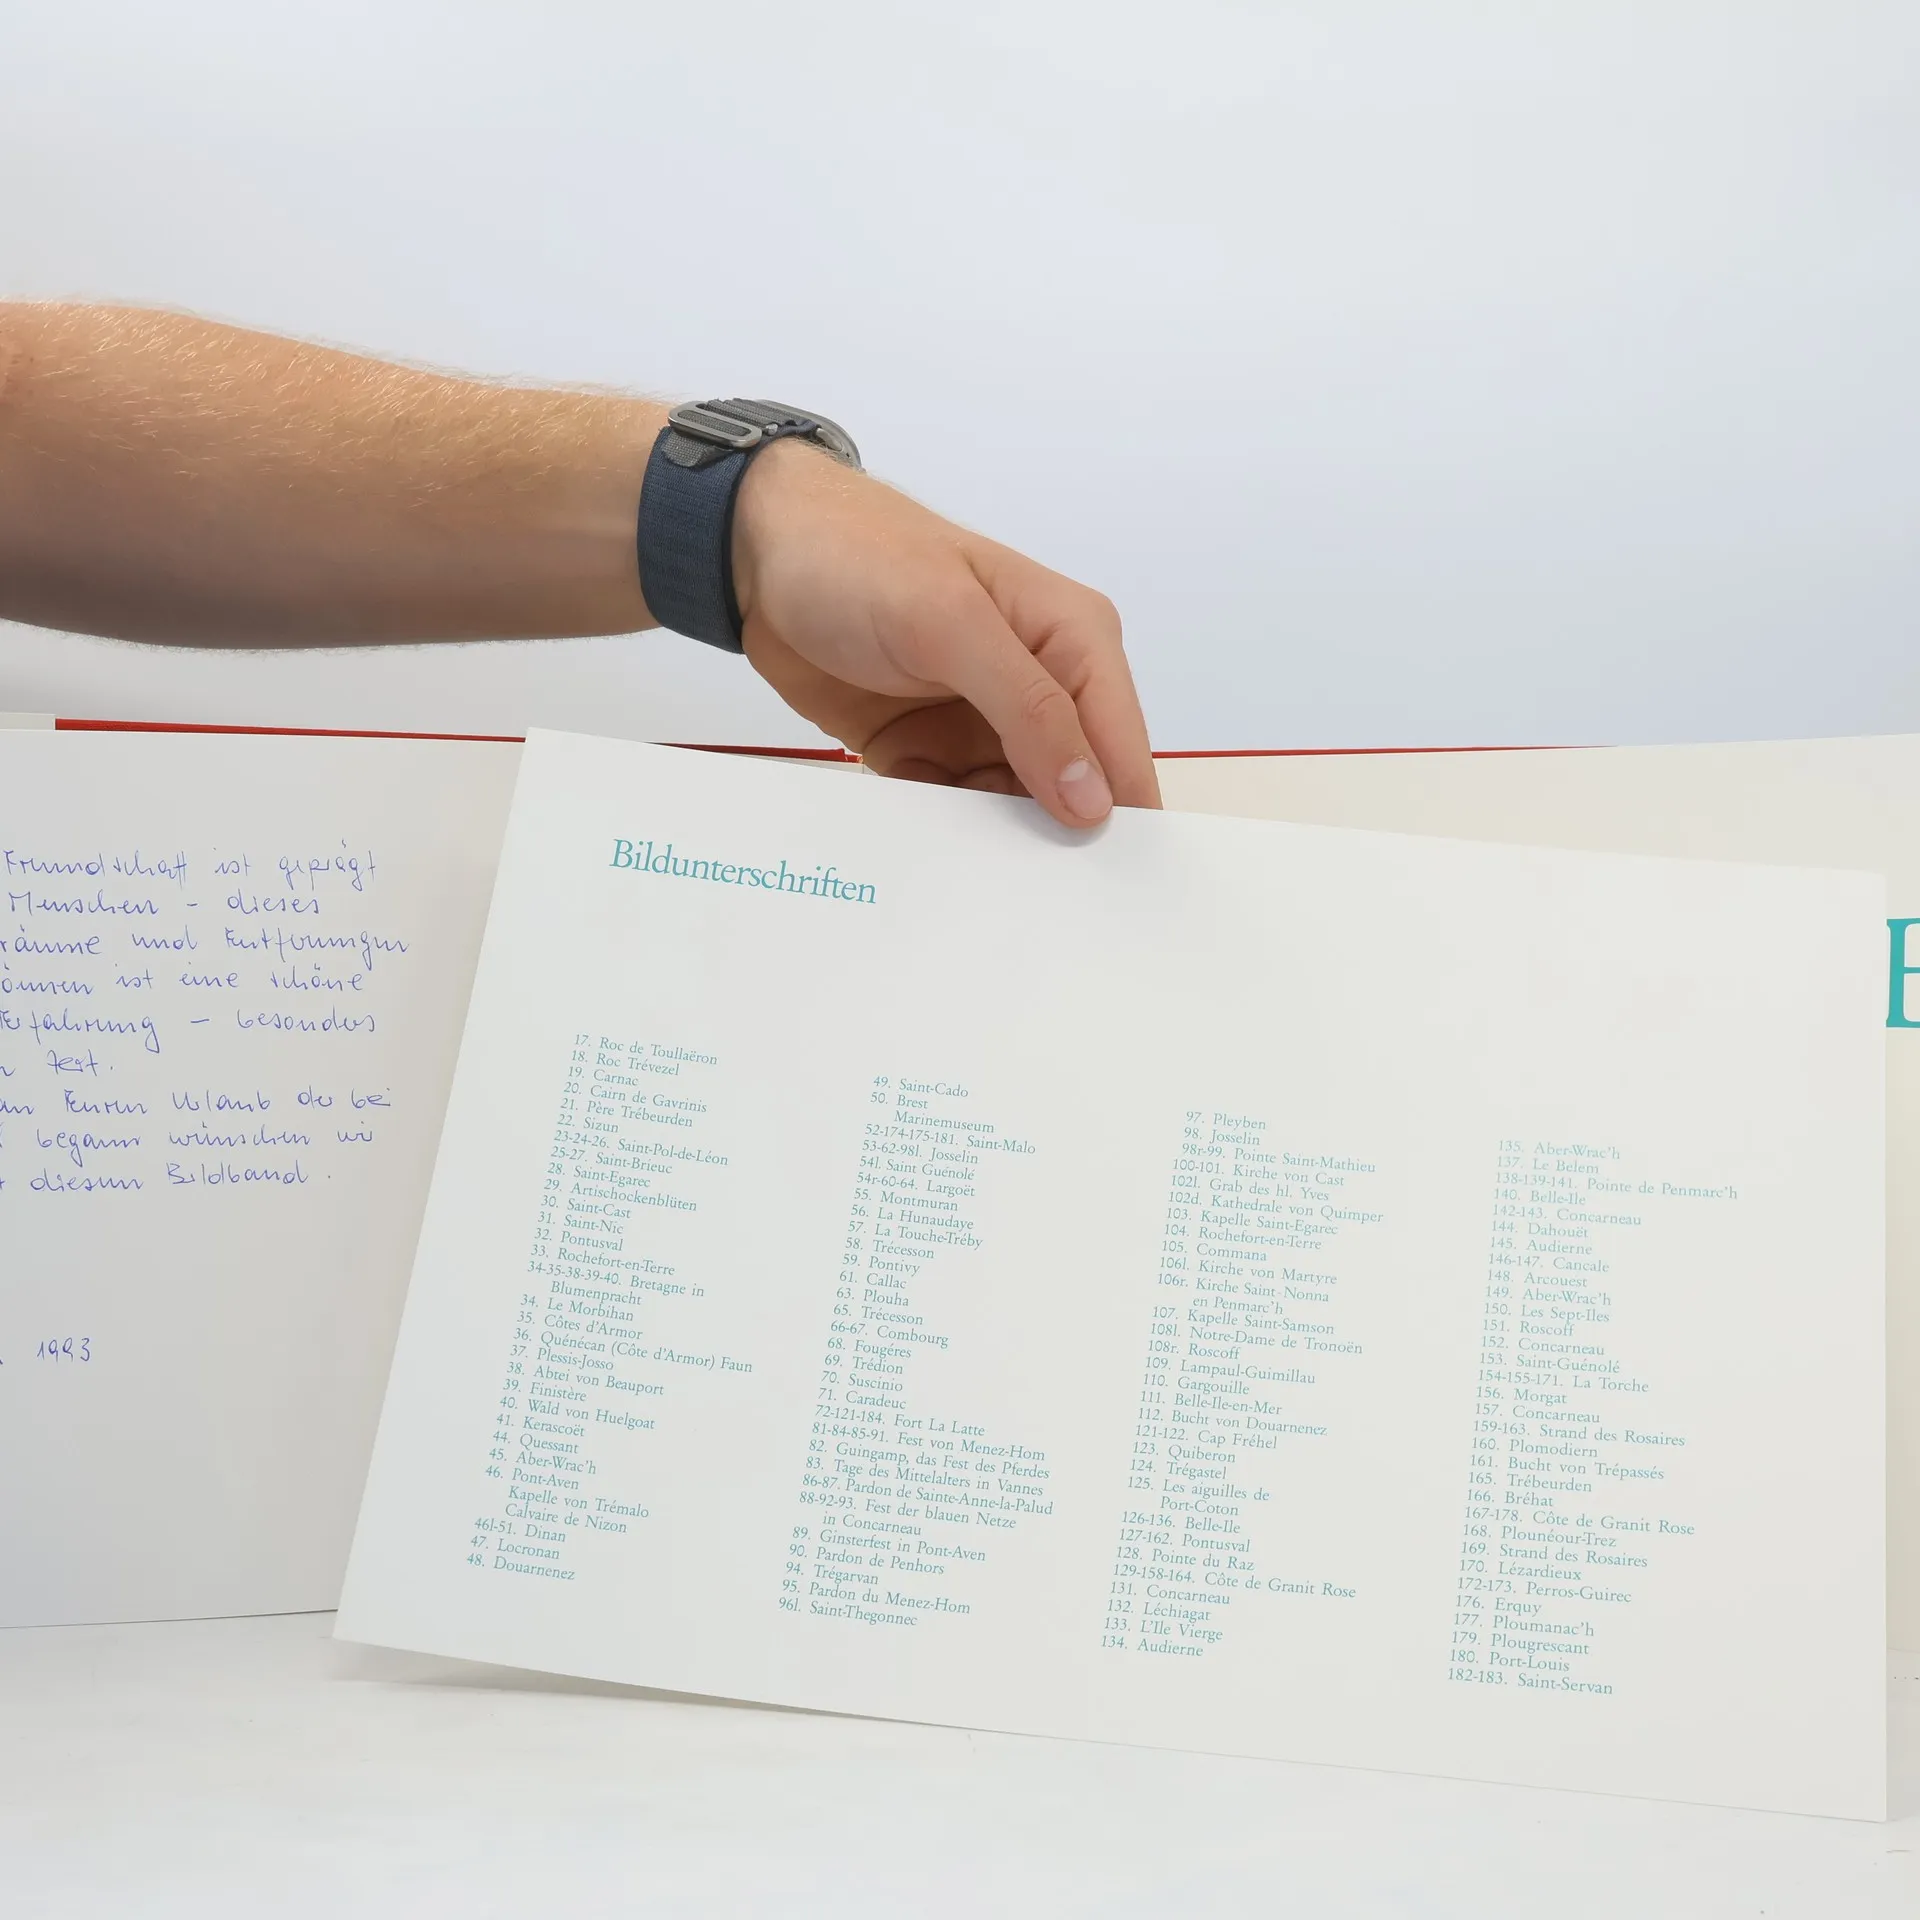 Freundschaft ist geprägt
Menschen – dieses
räume und Entfernungen
können ist eine schöne
Erfahrung – besonders
Fest.
an Euren Urlaub der bei
begann wünschen wir
diesem Bildband.
1993
Bildunterschriften
17. Roc de Toullaëron
18. Roc Trévezel
19. Carnac
20. Cairn de Gavrinis
21. Père Trébeurden
22. Sizun
23-24-26. Saint-Pol-de-Léon
25-27. Saint-Brieuc
28. Saint-Egarec
29. Artischockenblüten
30. Saint-Cast
31. Saint-Nic
32. Pontusval
33. Rochefort-en-Terre
34-35-38-39-40. Bretagne in
Blumenpracht
34. Le Morbihan
35. Côtes d'Armor
36. Quénécan (Côte d'Armor) Faun
37. Plessis-Josso
38. Abtei von Beauport
39. Finistère
40. Wald von Huelgoat
41. Kerascoët
44. Quessant
45. Aber-Wrac'h
46. Pont-Aven
Kapelle von Trémalo
Calvaire de Nizon
46l-51. Dinan
47. Locronan
48. Douarnenez
49. Saint-Cado
50. Brest
Marinemuseum
52-174-175-181. Saint-Malo
53-62-98l. Josselin
54l. Saint Guénolé
54r-60-64. Largoët
55. Montmuran
56. La Hunaudaye
57. La Touche-Tréby
58. Trécesson
59. Pontivy
61. Callac
63. Plouha
65. Trécesson
66-67. Combourg
68. Fougéres
69. Trédion
70. Suscinio
71. Caradeuc
72-121-184. Fort La Latte
81-84-85-91. Fest von Menez-Hom
82. Guingamp, das Fest des Pferdes
83. Tage des Mittelalters in Vannes
86-87. Pardon de Sainte-Anne-la-Palud
88-92-93. Fest der blauen Netze
in Concarneau
89. Ginsterfest in Pont-Aven
90. Pardon de Penhors
94. Trégarvan
95. Pardon du Menez-Hom
96l. Saint-Thegonnec
97. Pleyben
98. Josselin
98r-99. Pointe Saint-Mathieu
100-101. Kirche von Cast
102l. Grab des hl. Yves
102d. Kathedrale von Quimper
103. Kapelle Saint-Egarec
104. Rochefort-en-Terre
105. Commana
106l. Kirche von Martyre
106r. Kirche Saint-Nonna
en Penmarc'h
107. Kapelle Saint-Samson
108l. Notre-Dame de Tronoën
108r. Roscoff
109. Lampaul-Guimillau
110. Gargouille
111. Belle-Ile-en-Mer
112. Bucht von Douarnenez
121-122. Cap Fréhel
123. Quiberon
124. Trégastel
125. Les aiguilles de
Port-Coton
126-136. Belle-Ile
127-162. Pontusval
128. Pointe du Raz
129-158-164. Côte de Granit Rose
131. Concarneau
132. Léchiagat
133. L'Ile Vierge
134. Audierne
135. Aber-Wrac'h
137. Le Belem
138-139-141. Pointe de Penmarc'h
140. Belle-Ile
142-143. Concarneau
144. Dahouët
145. Audierne
146-147. Cancale
148. Arcouest
149. Aber-Wrac'h
150. Les Sept-Iles
151. Roscoff
152. Concarneau
153. Saint-Guénolé
154-155-171. La Torche
156. Morgat
157. Concarneau
159-163. Strand des Rosaires
160. Plomodiern
161. Bucht von Trépassés
165. Trébeurden
166. Bréhat
167-178. Côte de Granit Rose
168. Plounéour-Trez
169. Strand des Rosaires
170. Lézardieux
172-173. Perros-Guirec
176. Erquy
177. Ploumanac'h
179. Plougrescant
180. Port-Louis
182-183. Saint-Servan